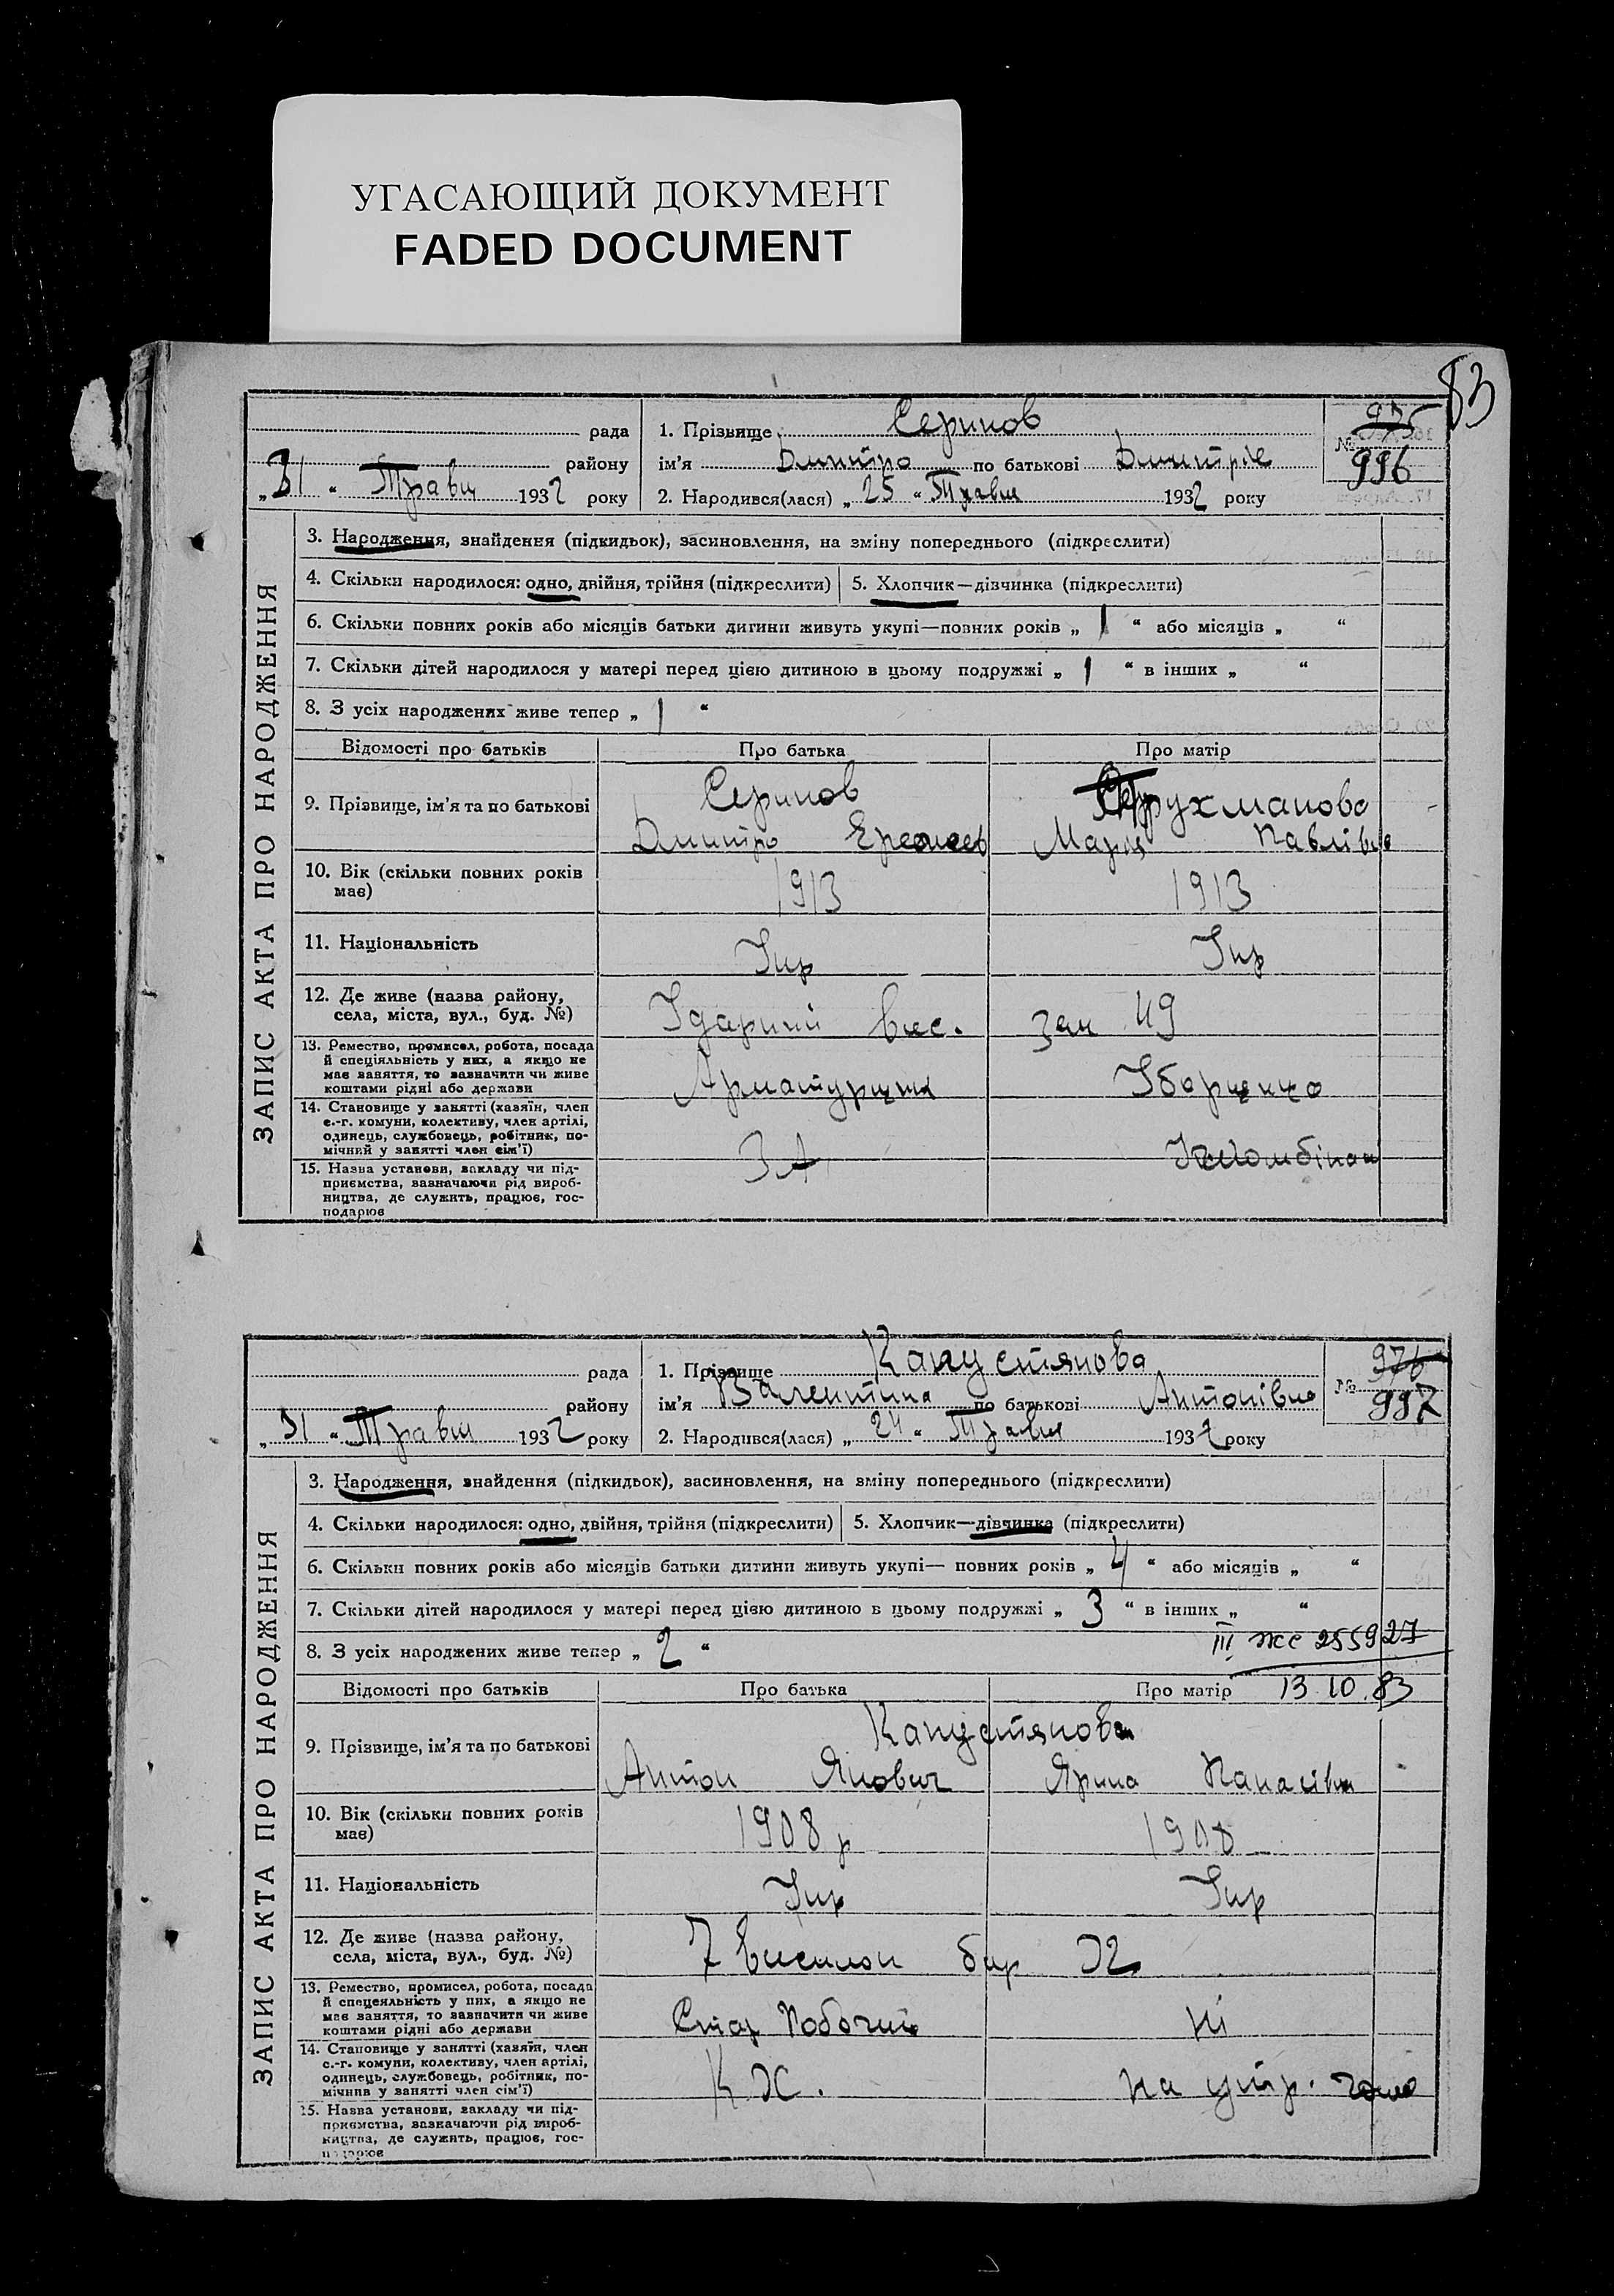 УГАСАЮЩИЙ ДОКУМЕНТ
FADED DOCUMENT
83
рада
району
„31“ Травня 1932 року
1. Прізвище Серинов
ім'я Дмитро по батькові Дмитріє
2. Народився(лася) „25“ Травня 1932 року
975
№ 996
ЗАПИС АКТА ПРО НАРОДЖЕННЯ
3. Народження, знайдення (підкидьок), засиновлення, на зміну попереднього (підкреслити)
4. Скільки народилося: одно, двійня, трійня (підкреслити)
5. Хлопчик—дівчинка (підкреслити)
6. Скільки повних років або місяців батьки дитини живуть укупі—повних років „1“ або місяців „ “
7. Скільки дітей народилося у матері перед цією дитиною в цьому подружжі „1“ в інших „ “
8. З усіх народжених живе тепер „1“
Відомості про батьків Про батька Про матір
9. Прізвище, ім'я та по батькові
Серинов
Дмитро
Струхманова
Марія Павлівна
10. Вік (скільки повних років
має)
1913 1913
11. Національність
Укр Укр
12. Де живе (назва району,
села, міста, вул., буд. №)
Ударний вис. зем 49
13. Ремество, промисел, робота, посада
й спеціяльність у них, а якщо не
має заняття, то зазначити чи живе
коштами рідні або держави
Арматурщик Уборщица
14. Становище у занятті (хазяїн, член
с.-г. комуни, колективу, член артілі,
одинець, службовець, робітник, по-
мічний у занятті член сім'ї)
15. Назва установи, закладу чи під-
приємства, зазначаючи рід вироб-
ництва, де служить, працює, гос-
подарює
рада
району
„31“ Травня 1932 року
1. Прізвище Капустянова
ім'я Валентина по батькові Антонівна
2. Народився(лася) „24“ Травня 1932 року
976
№ 997
ЗАПИС АКТА ПРО НАРОДЖЕННЯ
3. Народження, знайдення (підкидьок), засиновлення, на зміну попереднього (підкреслити)
4. Скільки народилося: одно, двійня, трійня (підкреслити)
5. Хлопчик—дівчинка (підкреслити)
6. Скільки повних років або місяців батьки дитини живуть укупі— повних років „4“ або місяців „ “
7. Скільки дітей народилося у матері перед цією дитиною в цьому подружжі „3“ в інших „ “
8. З усіх народжених живе тепер „2“
III ЖС 255927
13.10.83
Відомості про батьків Про батька Про матір
9. Прізвище, ім'я та по батькові
Капустянова
Антон Янович Ярина Панасівна
10. Вік (скільки повних років
має)
1908 р 1908
11. Національність
Укр Укр
12. Де живе (назва району,
села, міста, вул., буд. №)
7 виселок бар 32
13. Ремество, промисел, робота, посада
й спецеяльність у них, а якщо не
має заняття, то зазначити чи живе
коштами рідні або держави
Стар Робочий Ні
14. Становище у занятті (хазяїн, член
с.-г. комуни, колективу, член артілі,
одинець, службовець, робітник, по-
мічнив у занятті член сім'ї)
на утр.
15. Назва установи, закладу чи під-
приємства, зазначаючи рід вироб-
ництва, де служить, працює, гос-
подарює